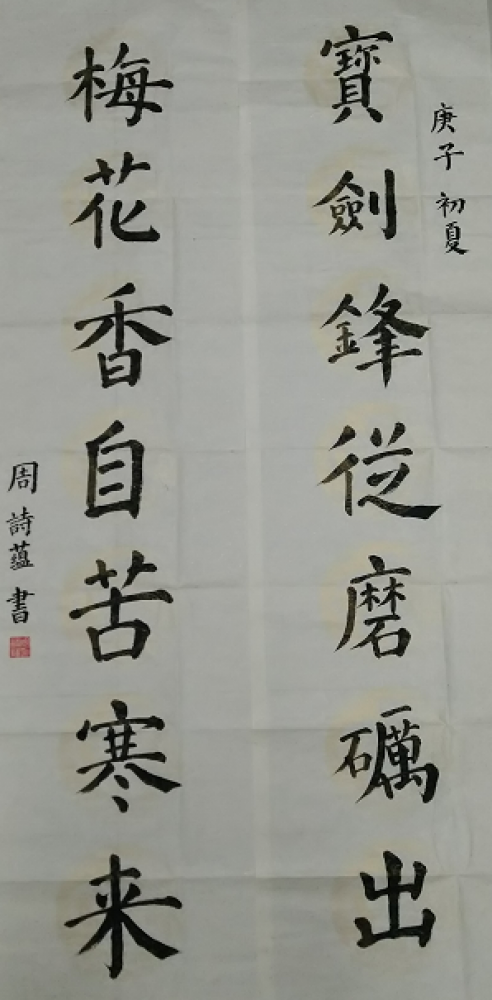 庚子初夏
寶劍鋒從磨礪出
梅花香自苦寒来
周詩蘊書